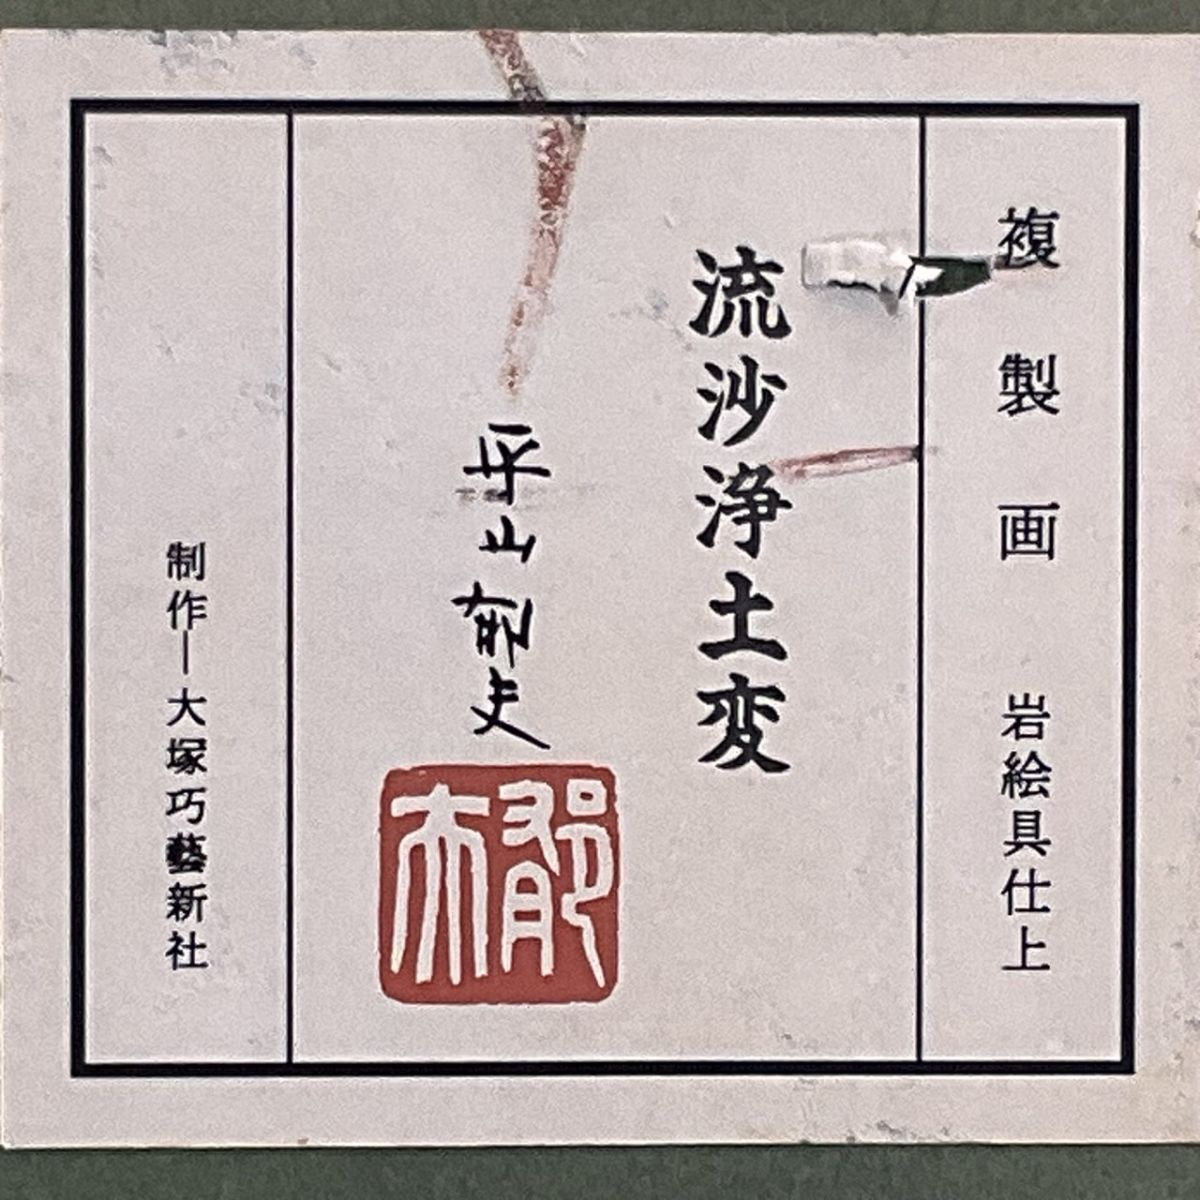 複製画 岩絵具仕上
流沙浄土変
平山郁夫
郁夫
制作―大塚巧藝新社